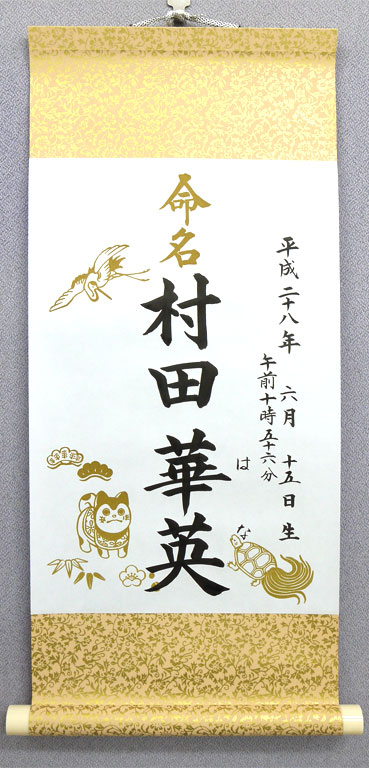 平成二十八年 六月 十五日 生
午前十時五十六分
命名
村田 華英
はな